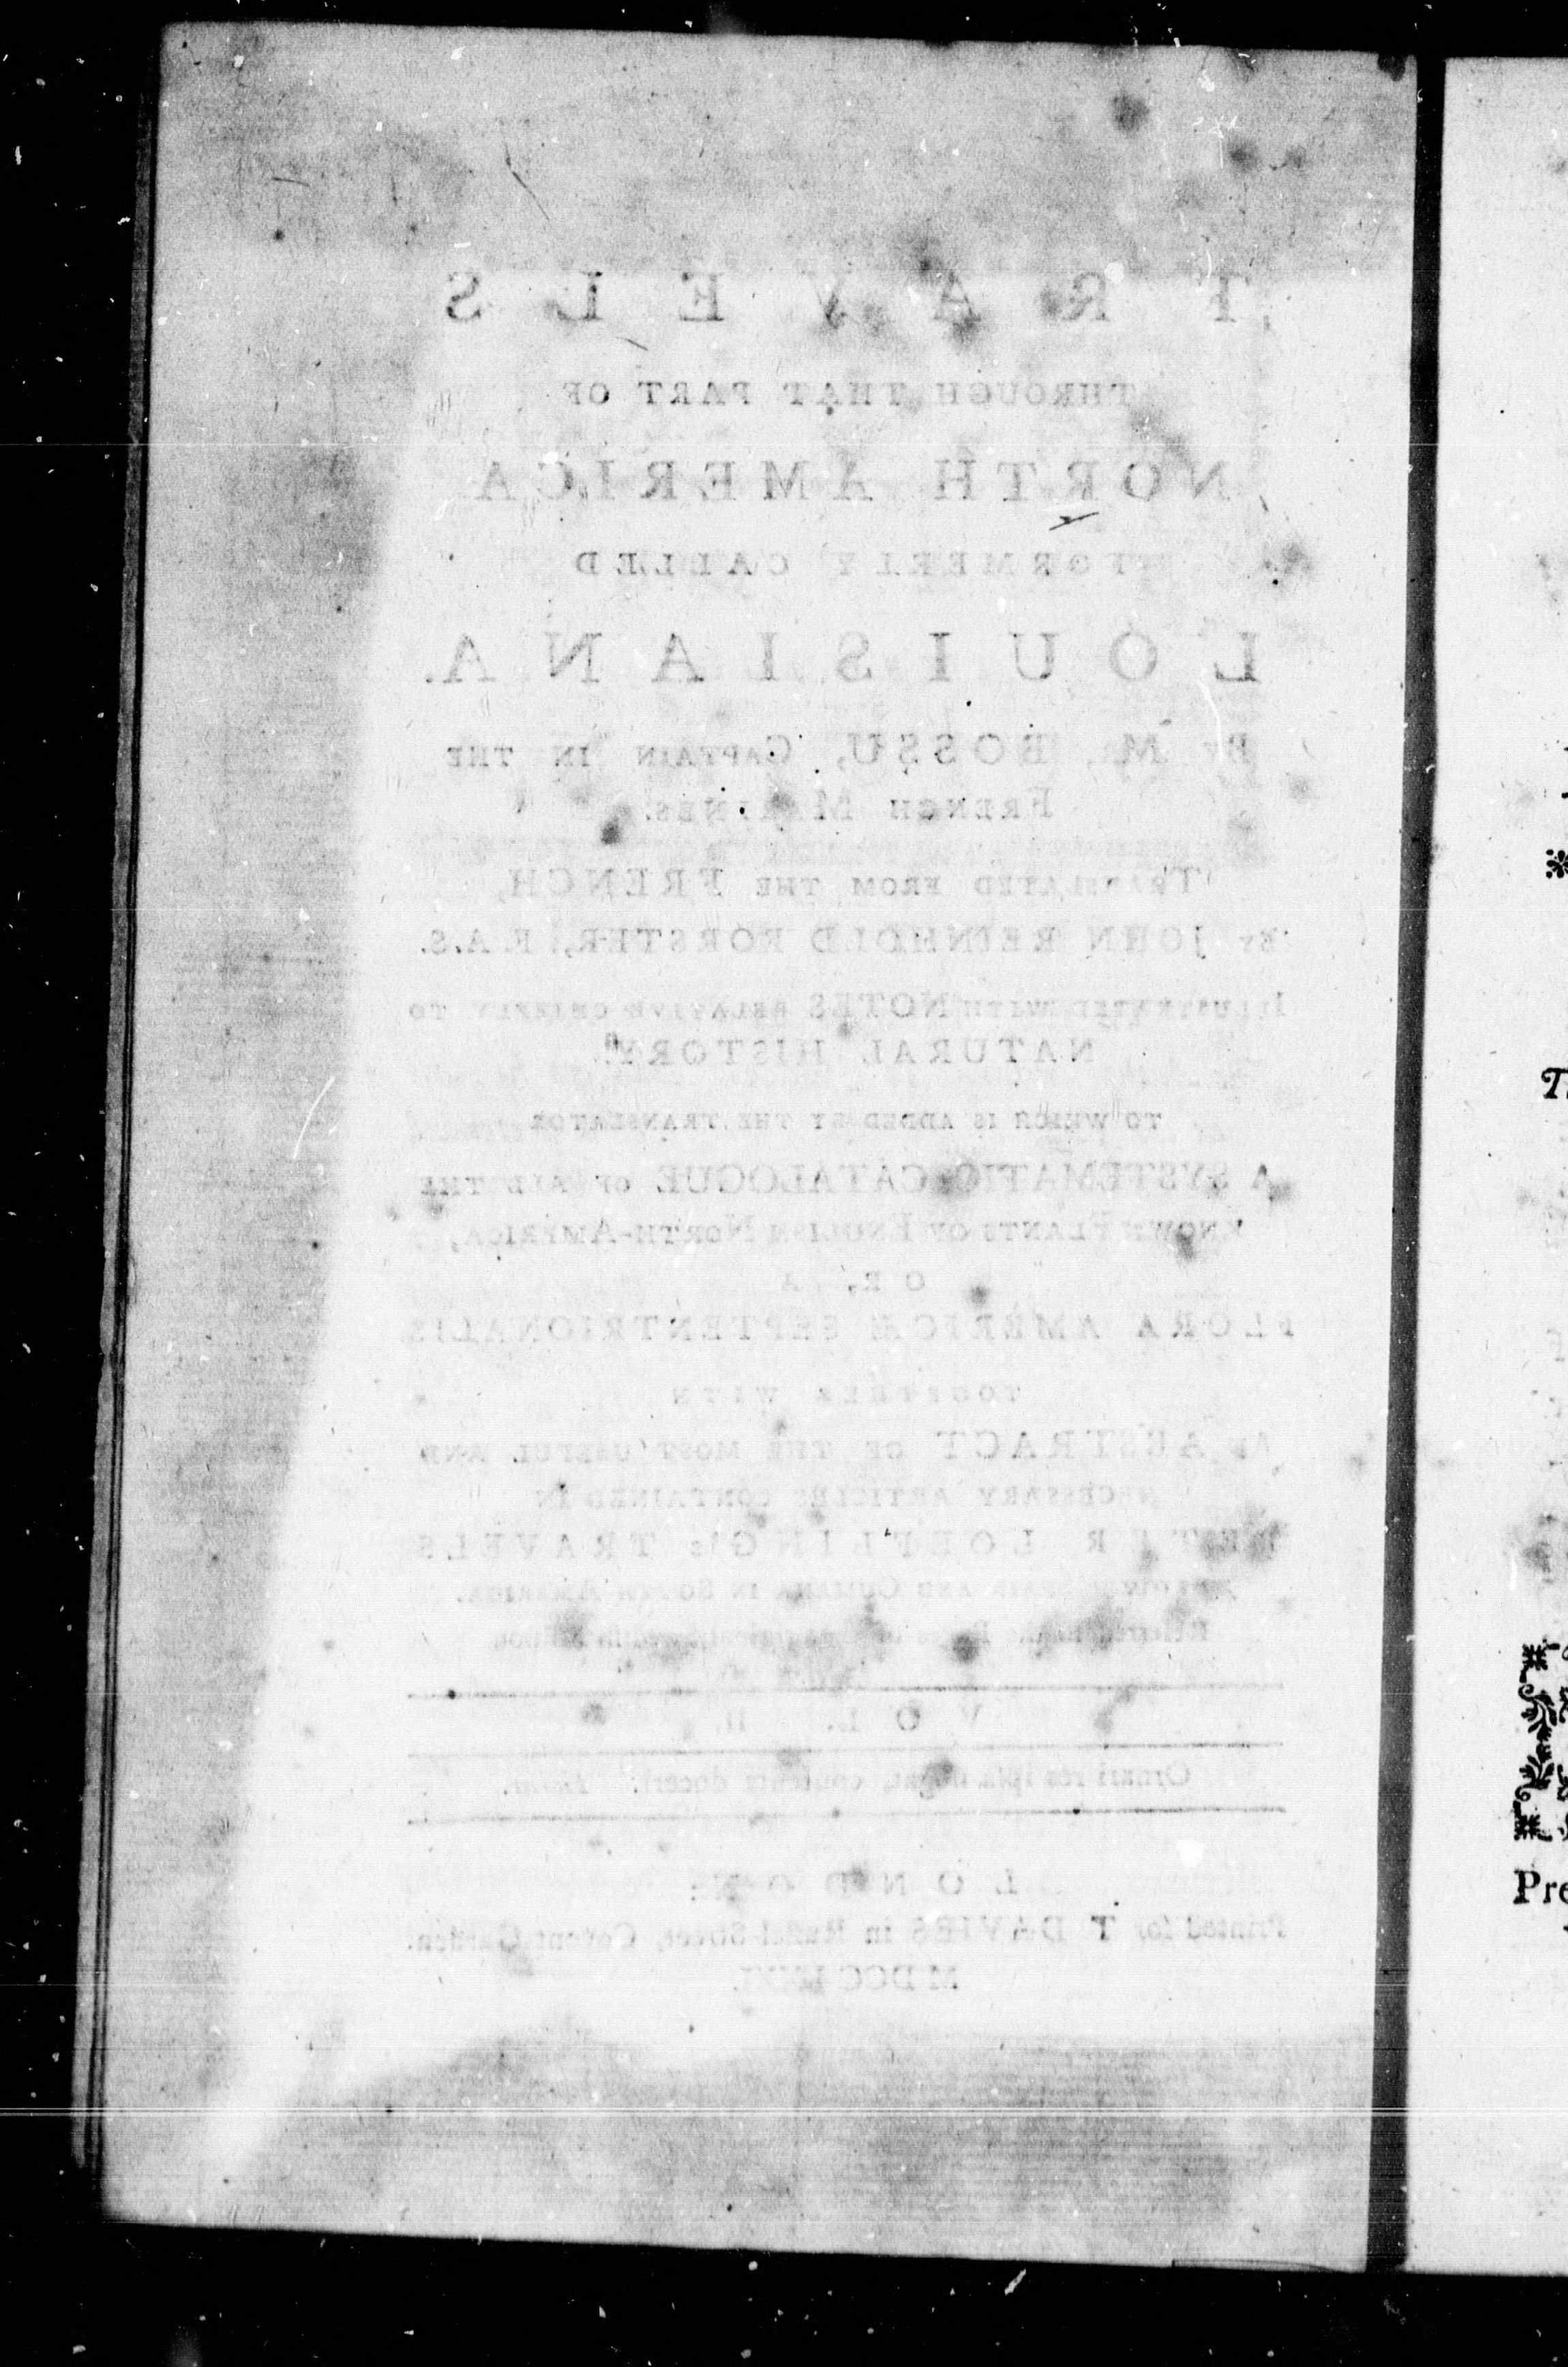 TRAVELS
THROUGH THAT PART OF
NORTH AMERICA
FORMERLY CALLED
LOUISIANA.
By M. BOSSU, CAPTAIN IN THE
FRENCH MARINES.
TRANSLATED FROM THE FRENCH,
By JOHN REINHOLD FORSTER, F.A.S.
ILLUSTRATED WITH NOTES RELATIVE CHIEFLY TO
NATURAL HISTORY.
TO WHICH IS ADDED BY THE TRANSLATOR
A SYSTEMATIC CATALOGUE OF ALL THE
KNOWN PLANTS OF ENGLISH NORTH-AMERICA,
OR, A
FLORA AMERICÆ SEPTENTRIONALIS.
TOGETHER WITH
An ABSTRACT OF THE MOST USEFUL AND
NECESSARY ARTICLES CONTAINED IN
PETER LOEFLING's TRAVELS
THROUGH SPAIN AND CUMANA IN SOUTH AMERICA.
VOL. II.
Ornari res ipsa negat, contenta doceri.
LONDON:
Printed for T. DAVIES in Russel-Street, Covent-Garden.
Pre